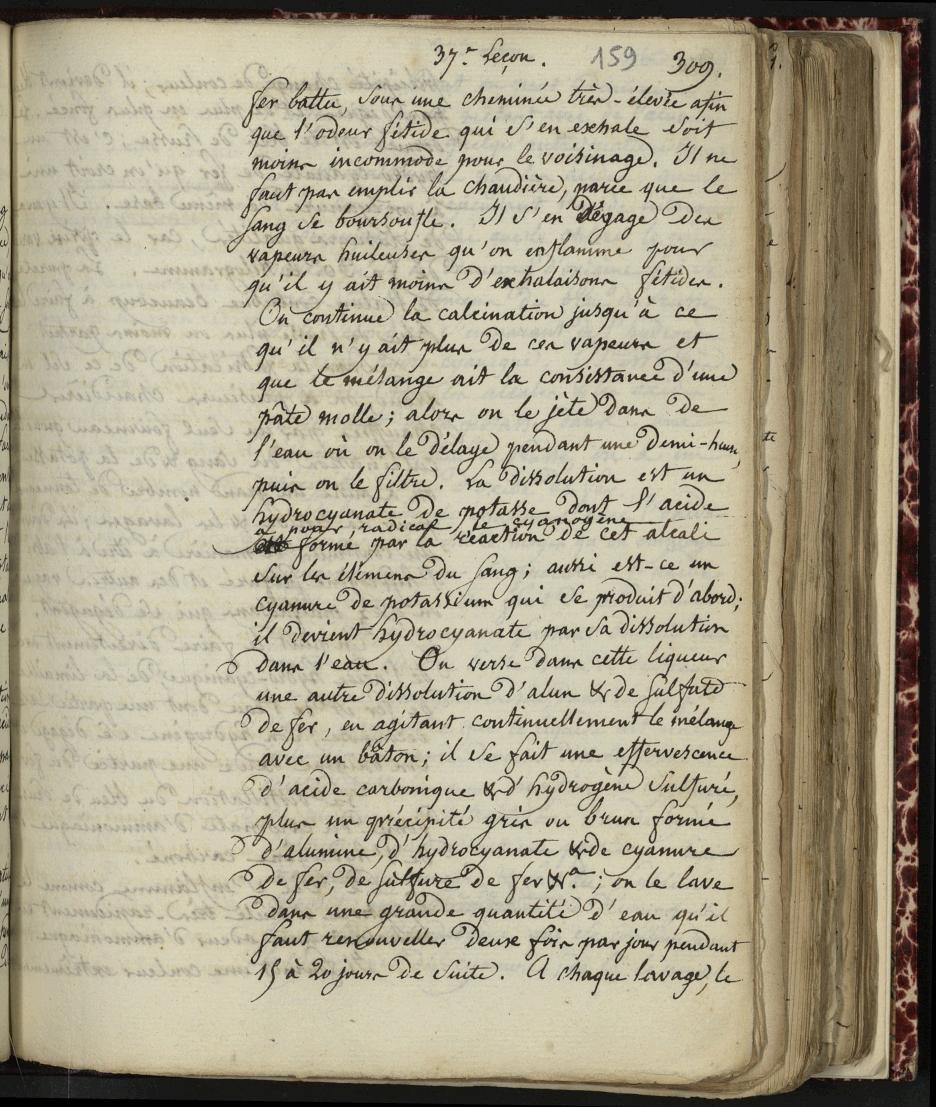 37.e Leçon. 159 309.
fer battu, sous une cheminée très-élevée afin
que l'odeur fétide qui s'en exhale soit
moins incommode pour le voisinage. Il ne
faut pas emplir la chaudière, parce que le
sang se boursoufle. Il s'en dégage des
vapeurs huileuses qu'on enflamme pour
qu'il y ait moins d'exhalaisons fétides.
On continue la calcination jusqu'à ce
qu'il n'y ait plus de ces vapeurs et
que le mélange ait la consistance d'une
pâte molle; alors on le jète dans de
l'eau où on le délaye pendant une demi-heure,
puis on le filtre. La dissolution est un
hydrocyanate de potasse dont l'acide
a pour radical le cyanogène
formé par la réaction de cet alcali
sur les élémens du sang; aussi est-ce un
cyanure de potassium qui se produit d'abord;
il devient hydrocyanate par sa dissolution
dans l'eau. On verse dans cette liqueur
une autre dissolution d'alun & de sulfate
de fer, en agitant continuellement le mélange
avec un bâton; il se fait une effervescence
d'acide carbonique & d'hydrogène sulfuré,
plus un précipité gris ou brun formé
d'alumine, d'hydrocyanate & de cyanure
de fer, de sulfure de fer &.a; on le lave
dans une grande quantité d'eau qu'il
faut renouveller deux fois par jour pendant
15 à 20 jours de suite. A chaque lavage, le